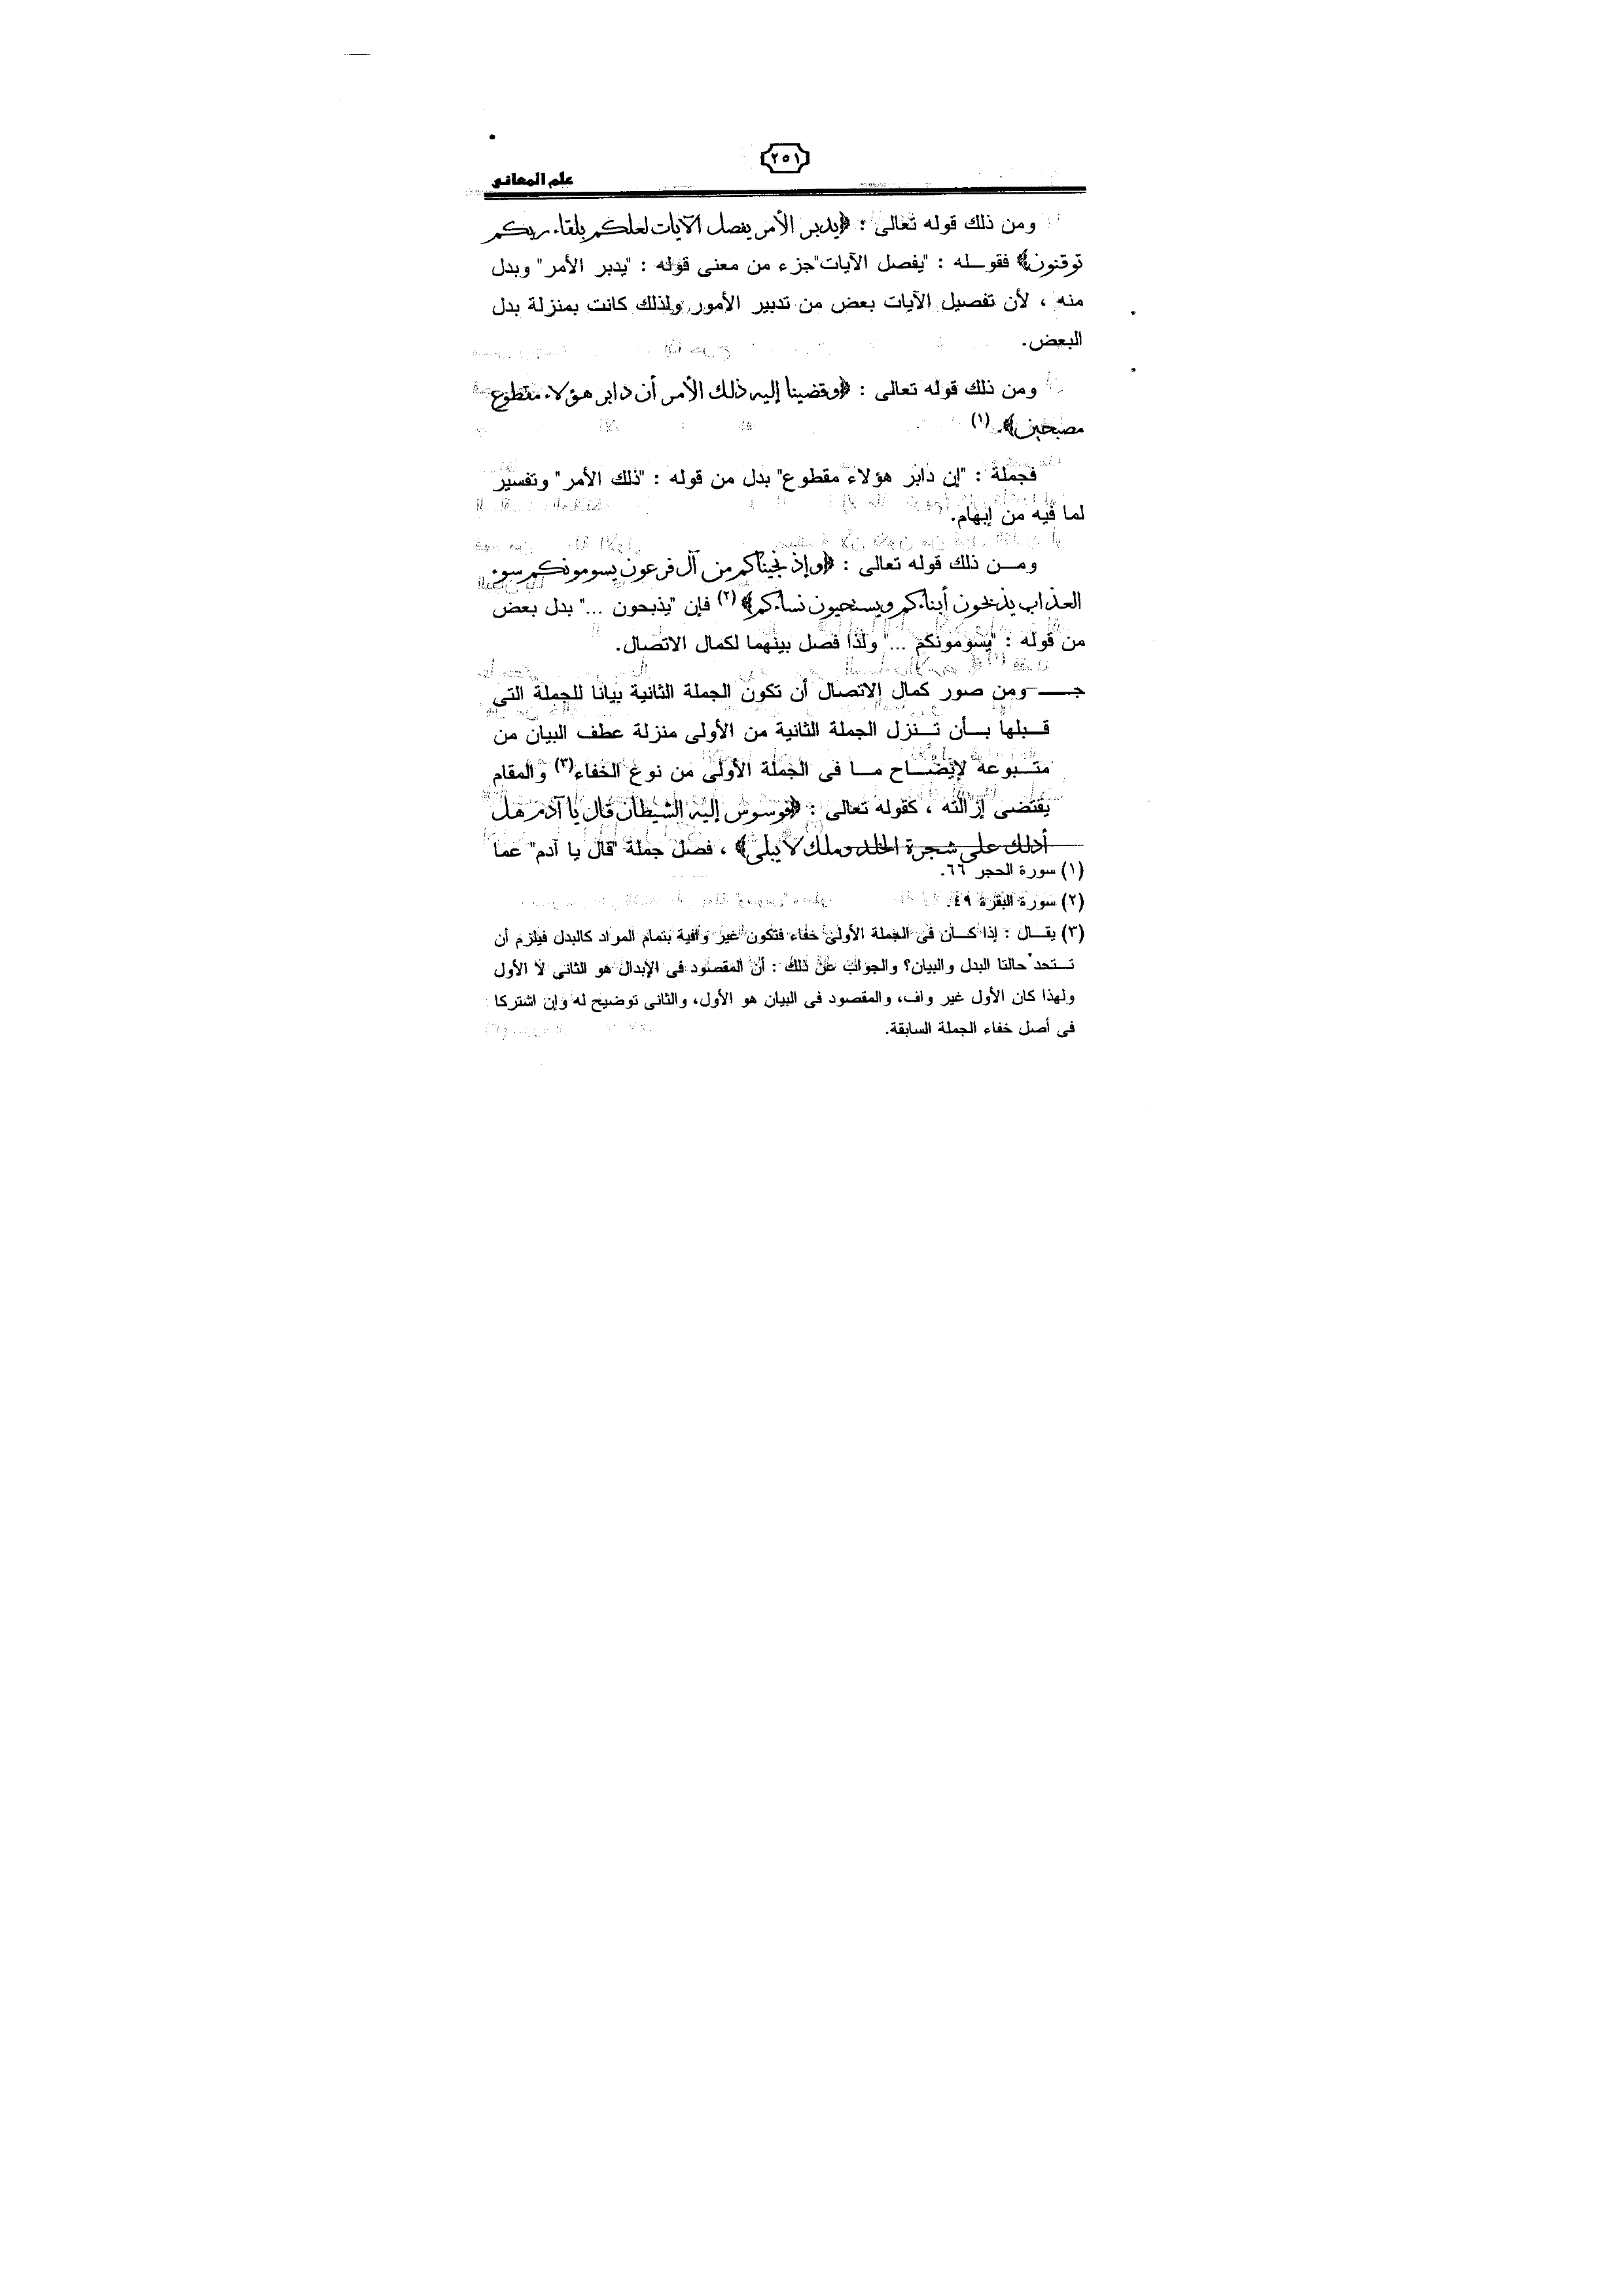 ٢٥١
علم المعانى
ومن ذلك قوله تعالى : ﴿يدبر الأمر يفصل الآيات لعلكم بلقاء ربكم
توقنون﴾ فقوله : "يفصل الآيات" جزء من معنى قوله : "يدبر الأمر" وبدل
منه ، لأن تفصيل الآيات بعض من تدبير الأمور ولذلك كانت بمنزلة بدل
البعض.
ومن ذلك قوله تعالى : ﴿وقضينا إليه ذلك الأمر أن دابر هؤلاء مقطوع
مصبحين﴾. (١)
فجملة : "إن دابر هؤلاء مقطوع" بدل من قوله : "ذلك الأمر" وتفسير
لما فيه من إبهام.
ومن ذلك قوله تعالى : ﴿وإذ نجيناكم من آل فرعون يسومونكم سوء
العذاب يذبحون أبناءكم ويستحيون نساءكم﴾ (٢) فإن "يذبحون ..." بدل بعض
من قوله : "يسومونكم ..." ولذا فصل بينهما لكمال الاتصال.
جـ - ومن صور كمال الاتصال أن تكون الجملة الثانية بيانا للجملة التى
قبلها بأن تنزل الجملة الثانية من الأولى منزلة عطف البيان من
متبوعه لإيضاح ما فى الجملة الأولى من نوع الخفاء (٣) والمقام
يقتضى إزالته ، كقوله تعالى : ﴿فوسوس إليه الشيطان قال يا آدم هل
أدلك على شجرة الخلد وملك لا يبلى﴾ ، فصل جملة "قال يا آدم" عما
(١) سورة الحجر ٦٦.
(٢) سورة البقرة ٤٩.
(٣) يقال : إذا كان فى الجملة الأولى خفاء فتكون غير وافية بتمام المراد كالبدل فيلزم أن
تتحد حالتا البدل والبيان؟ والجواب عن ذلك : أن المقصود فى الإبدال هو الثانى لا الأول
ولهذا كان الأول غير واف، والمقصود فى البيان هو الأول، والثانى توضيح له وإن اشتركا
فى أصل خفاء الجملة السابقة.